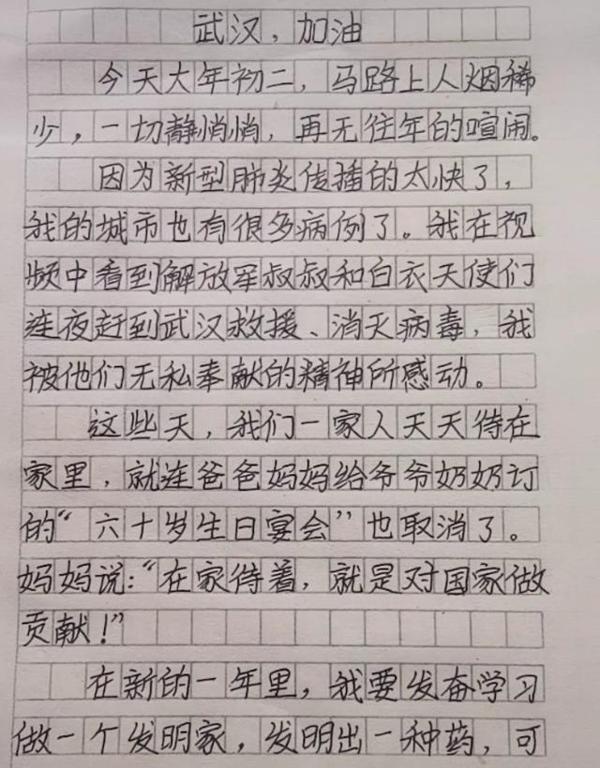 武汉，加油
今天大年初二，马路上人烟稀
少，一切静悄悄，再无往年的喧闹。
因为新型肺炎传播的太快了，
我的城市也有很多病例了。我在视
频中看到解放军叔叔和白衣天使们
连夜赶到武汉救援、消灭病毒，我
被他们无私奉献的精神所感动。
这些天，我们一家人天天待在
家里，就连爸爸妈妈给爷爷奶奶订
的“六十岁生日宴会”也取消了。
妈妈说：“在家待着，就是对国家做
贡献！”
在新的一年里，我要发奋学习
做一个发明家，发明出一种药，可